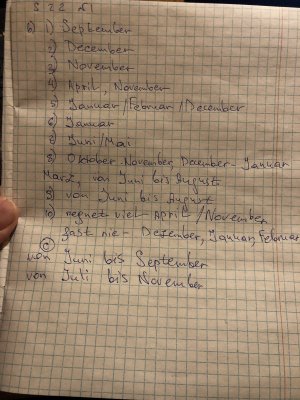 S 22 №1
b) 1) September
2) December
3) November
4) April, November
5) Januar/Februar/December
6) Januar
7) Juni/Mai
8) Oktober November, Dacember - Januar
März, von Juni bis August
9) von Juni bis August
10) regnet viel April/November
fast nie - Dezember, Januar, Februar
c)
von Juni bis September
von Juli bis November